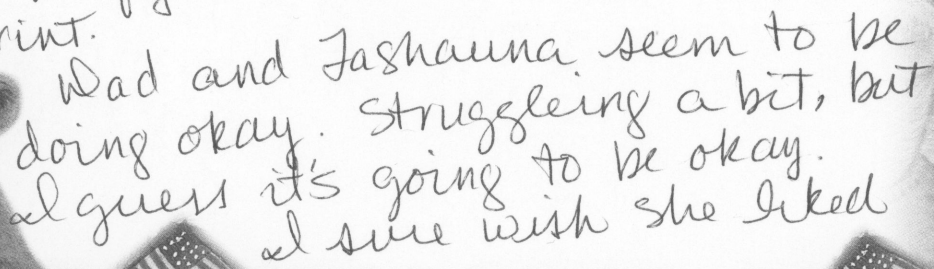 rint.
Dad and Tashauna seem to be
doing okay. Struggleing a bit, but
I guess it's going to be okay.
I sure wish she liked